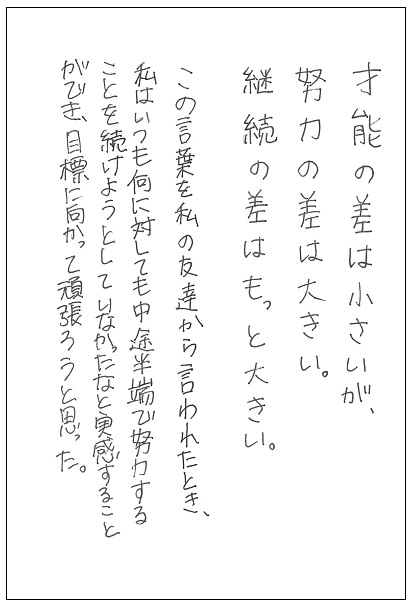 才能の差は小さいが、
努力の差は大きい。
継続の差はもっと大きい。
この言葉を私の友達から言われたとき、
私はいつも何に対しても中途半端で努力する
ことを続けようとしていなかったなと実感すること
ができ、目標に向かって頑張ろうと思った。